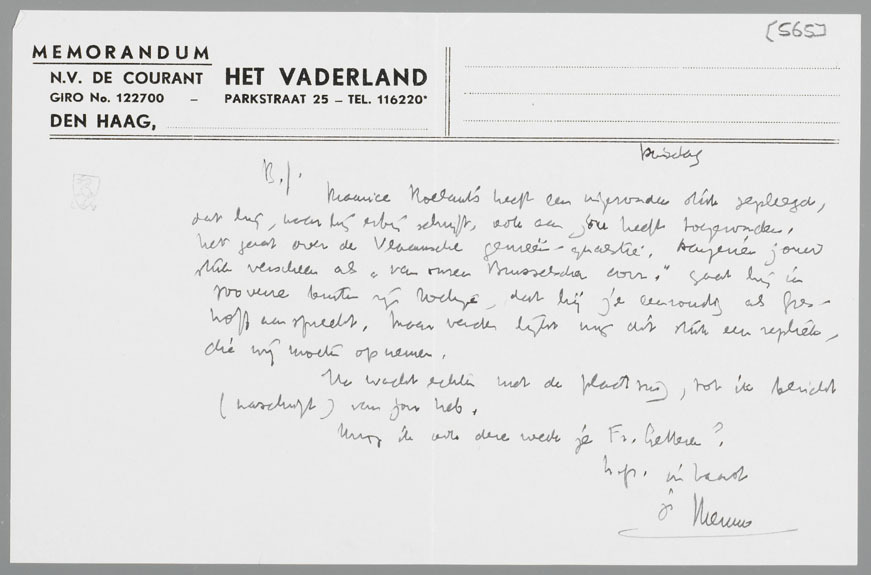 [565]
MEMORANDUM
N.V. DE COURANT HET VADERLAND
GIRO No. 122700 – PARKSTRAAT 25 – TEL. 116220*
DEN HAAG,
Dinsdag
B.J.
Maurice Roelants heeft een ingezonden stuk gepleegd,
dat hij, naar hij erbij schrijft, ook aan jou heeft toegezonden.
Het gaat over de Vlaamsche genieën-quaestie. Aangezien jouw
stuk verscheen als „van onzen Brusselschen corr." gaat hij in
zooverre buiten zijn boekje, dat hij je eenvoudig als Gres-
hoff aanspreekt. Maar verder lijkt mij dit stuk een repliek,
die wij moeten opnemen.
Ik wacht echter met de plaatsing, tot ik bericht
(naschrift) van jou heb.
Krijg ik ook deze week je Fr. Letteren?
h.gr. in haast
je Menno